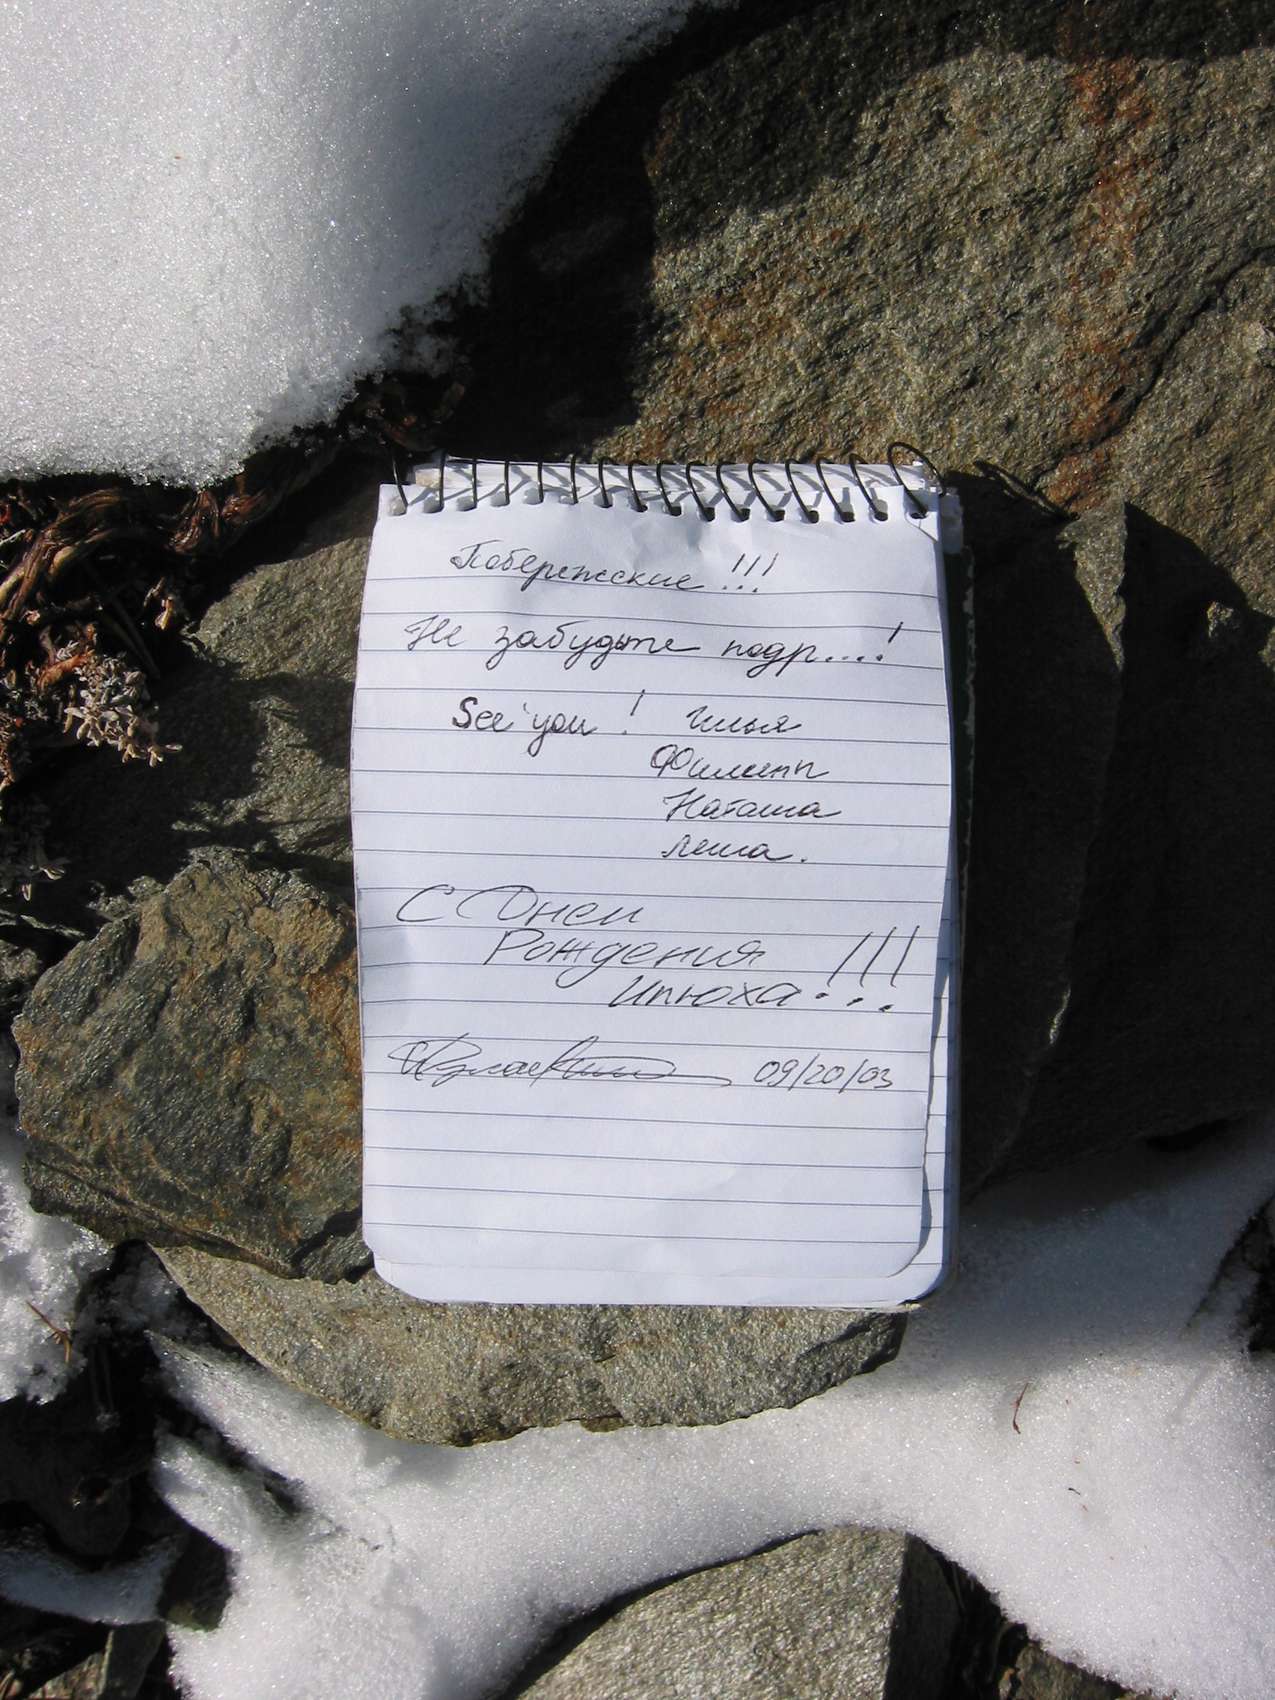 Побережские!!!
Не забудьте подр....!
See you! Илья
Филипп
Наташа
Леша.
С Днем
Рождения
Илюха!!!
09/20/03